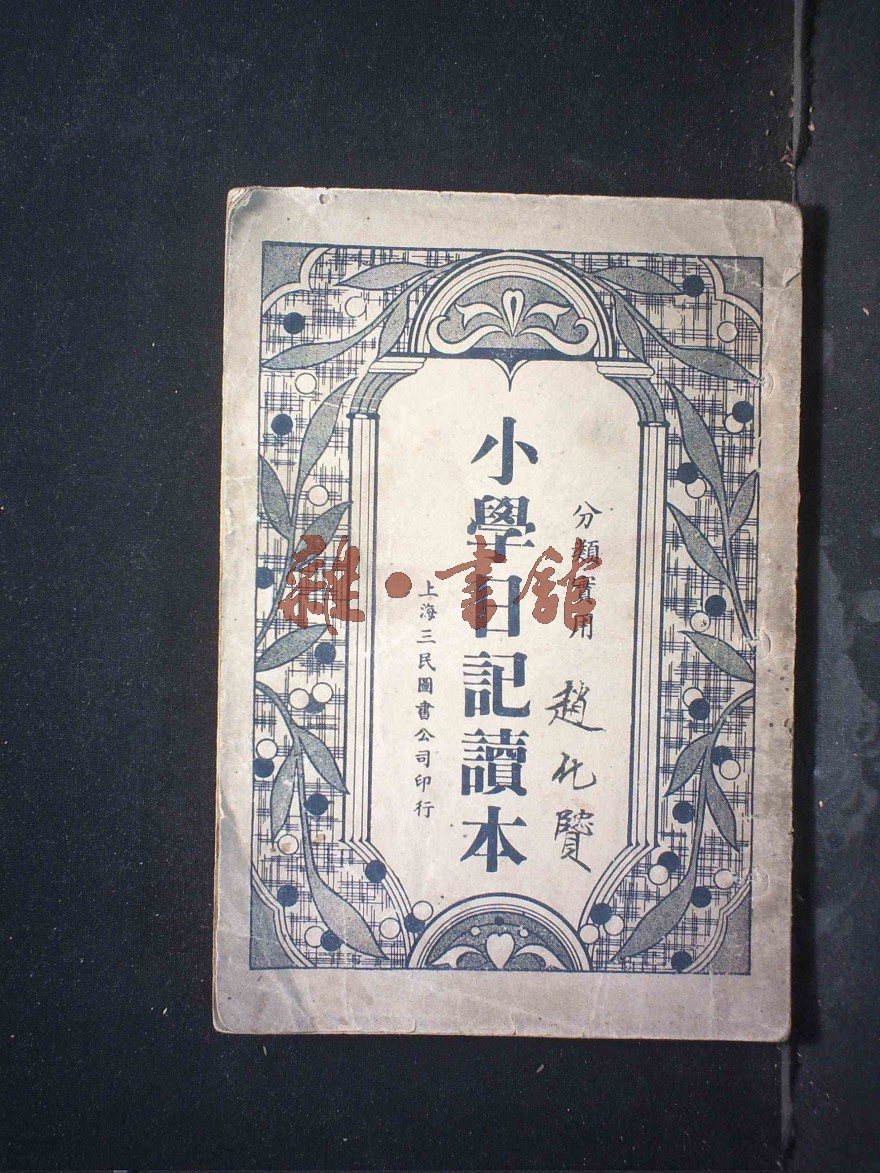 分類實用
小學日記讀本
上海三民圖書公司印行
趙化覽
雜·書館